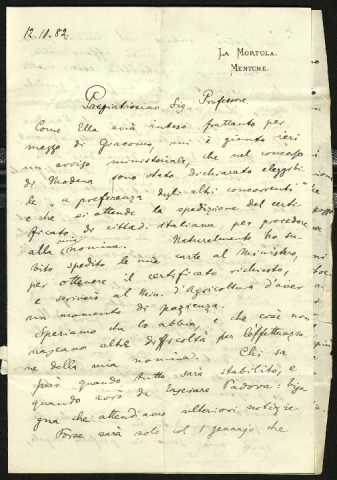 12.11.82.
LA MORTOLA.
MENTONE.
Pregiatissimo Sig. Professore.
Come Ella avrà inteso frattanto per
mezzo di Giacomo, mi è giunto ieri
un avviso ministeriale, che nel concorso
di Modena sono stato dichiarato eleggibi-
le "a preferenza degli altri concorrenti"
e che si attende la spedizione del certi-
ficato di cittad. italiana per procedere
alla mia nomina. Naturalmente ho su-
bito spedito le mie carte al Ministero,
per ottenere il certificato richiesto,
e scrissi al Min. d'Agricoltura d'aver
un momento di pazienza.
Speriamo che lo abbia, e che così non
nascano altre difficoltà per l'effettuazio-
ne della mia nomina. Chi sa
però quando tutto sarà stabilito, e
quando avrò da lasciare Padova: biso-
gna che attendiamo ulteriori notizie.
Forse sarà solo col 1 gennajo che